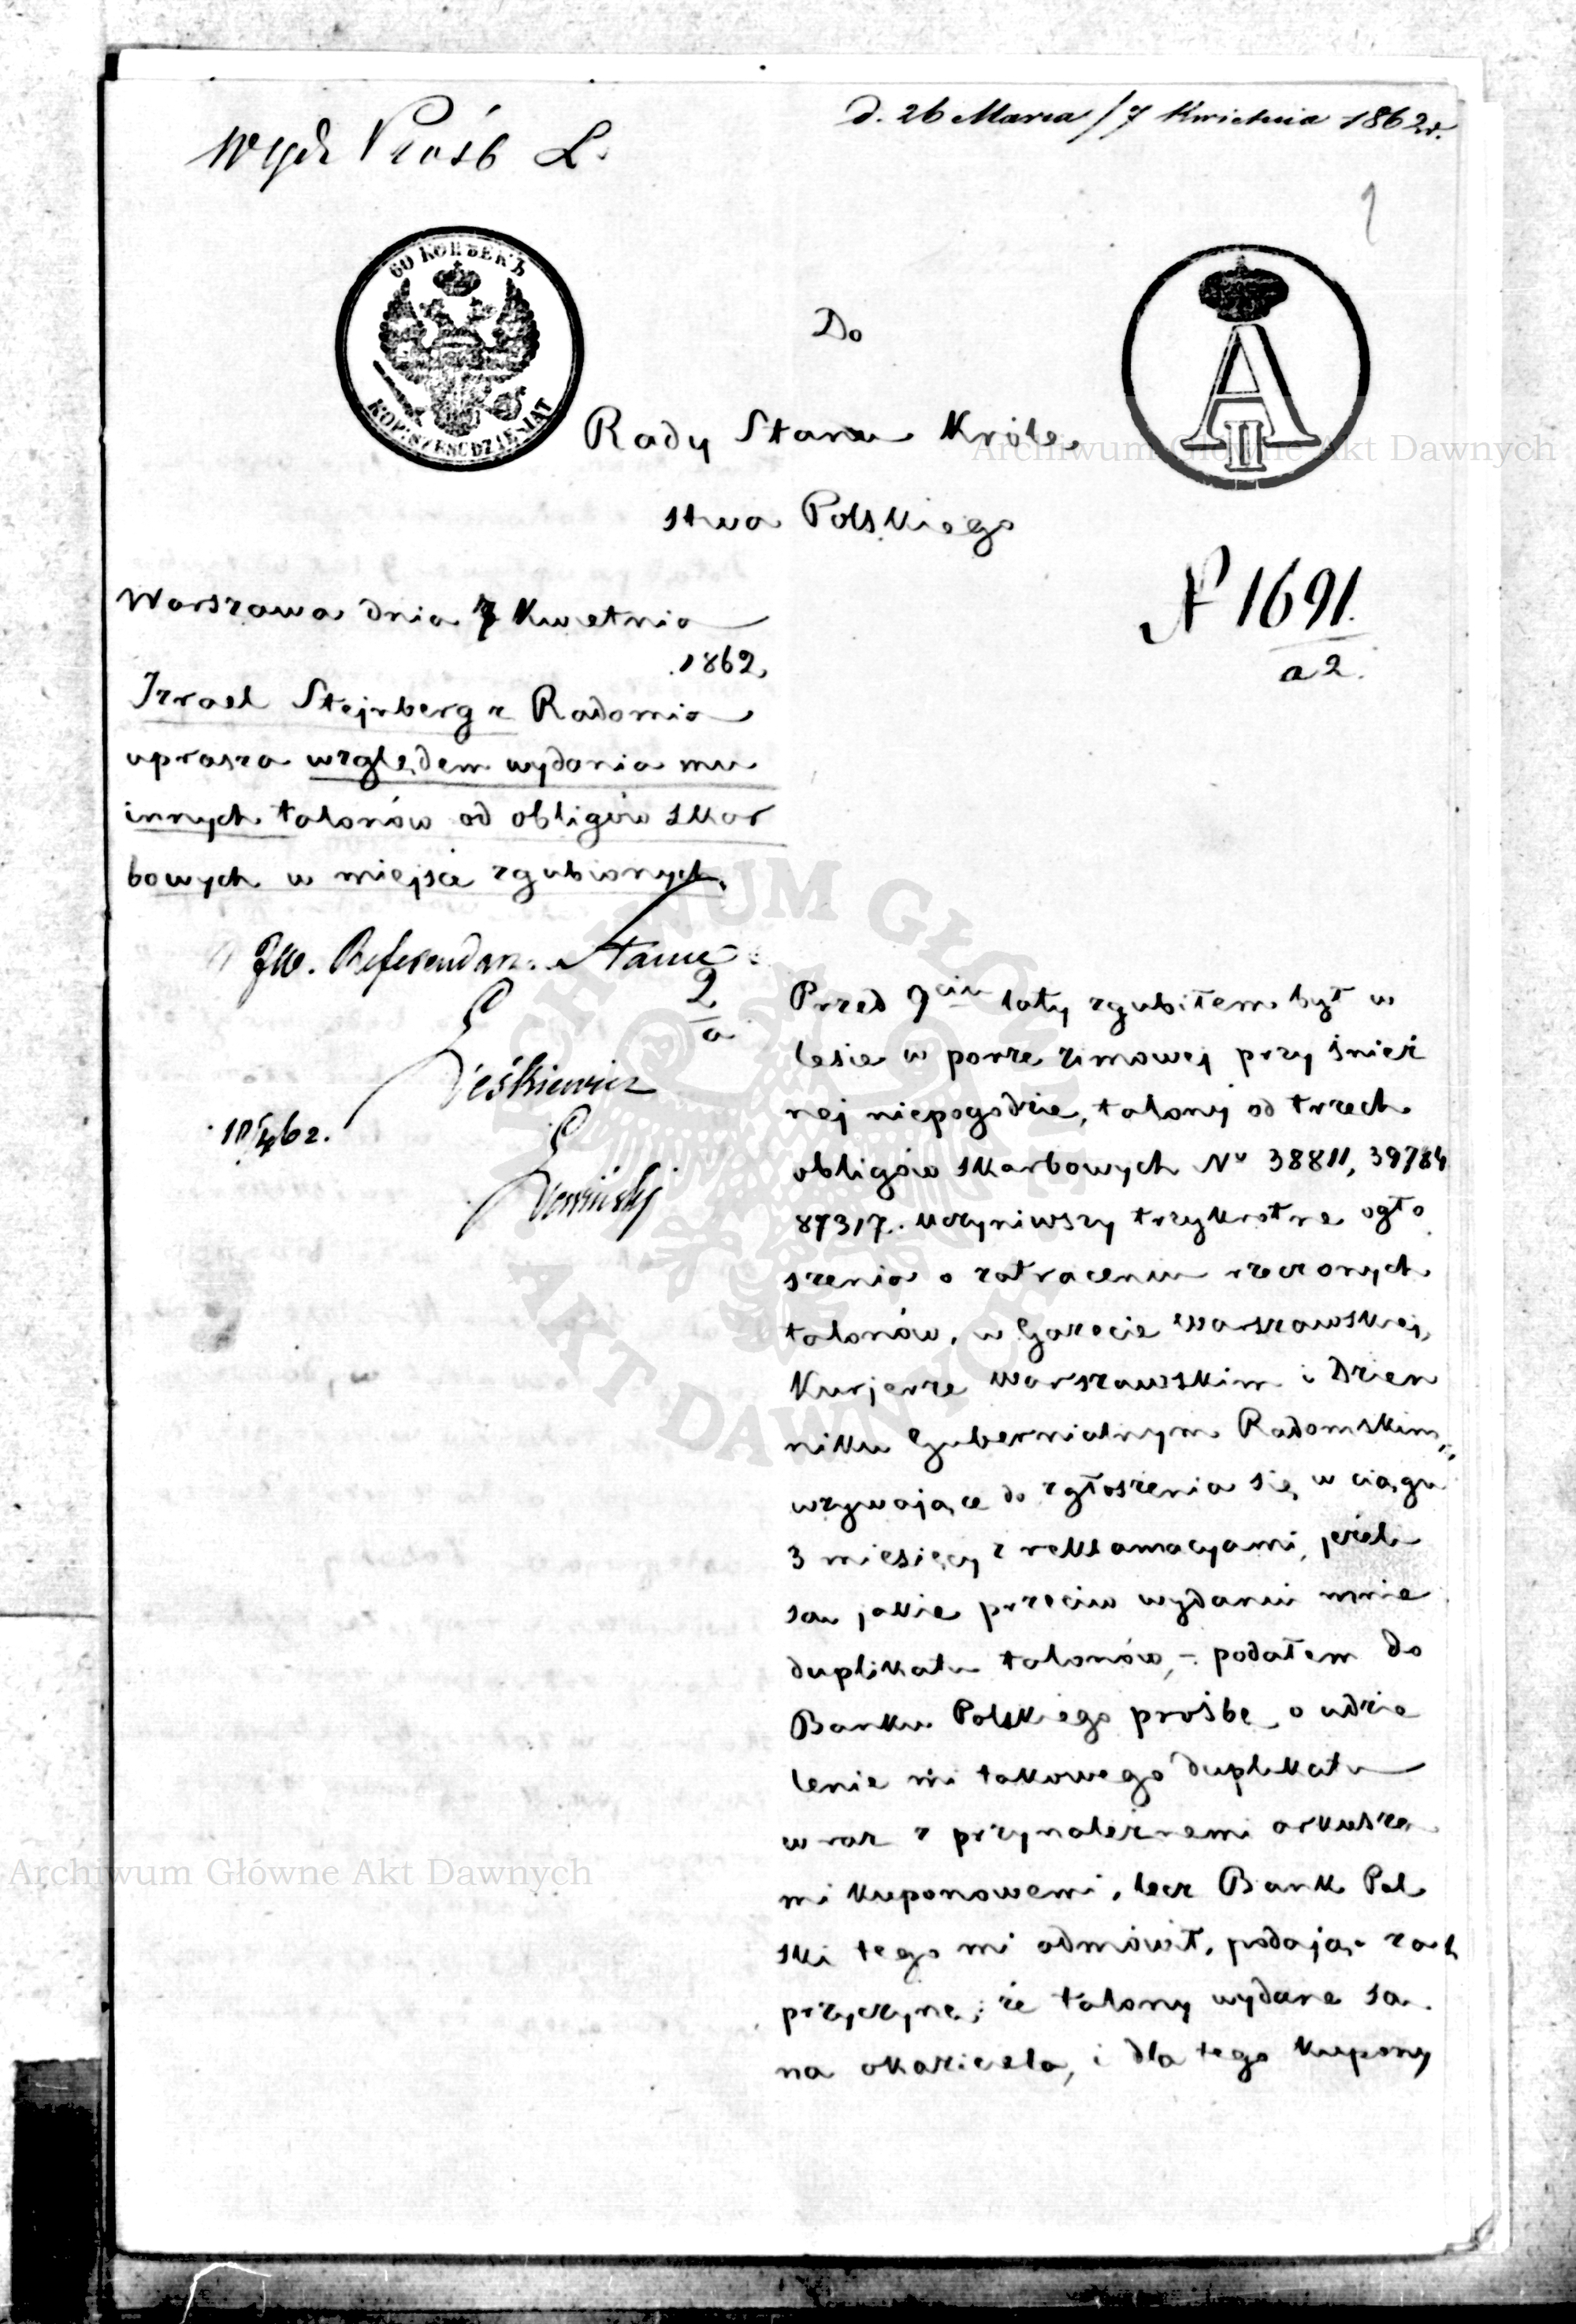 d. 26 Marca/7 Kwietnia 1862 r.
Wydz Próśb L.
1
60 КОПѢЕКЪ
KOP: SZEŚĆDZIESIĄT
A
II
Do
Rady Stanu Króle
stwa Polskiego
N 1691.
a 2.
Warszawa dnia 7 Kwietnia
1862,
Izrael Stejnberg z Radomia
uprasza względem wydania mu
innych talonów od obligów skar
bowych w miejsce zgubionych.
JW. Referendarz Stanu
2
a
10/4 62.
Przed 9ciu laty zgubiłem był w
lesie w porze zimowej przy śnież
nej niepogodzie, talony od trzech
obligów skarbowych No 38811, 39784
87317. Uczyniwszy trzykrotne ogło
szenia o zatraceniu rzeczonych
talonów, w Gazecie Warszawskiej,
Kurjerze Warszawskim i Dzien
niku Gubernialnym Radomskim,
wzywające do zgłoszenia się w ciągu
3 miesięcy z reklamacyami, jeżeli
są jakie przeciw wydaniu mnie
duplikatu talonów, – podałem do
Banku Polskiego prośbę o udzie
lenie mi takowego duplikatu
wraz z przynależnemi arkusza
mi kuponowemi, lecz Bank Pol
ski tego mi odmówił, podając za
przyczynę; że talony wydane są
na okaziciela, i dla tego kupony
Archiwum Główne Akt Dawnych
Archiwum Główne Akt Dawnych
ARCHIWUM GŁÓWNE
AKT DAWNYCH